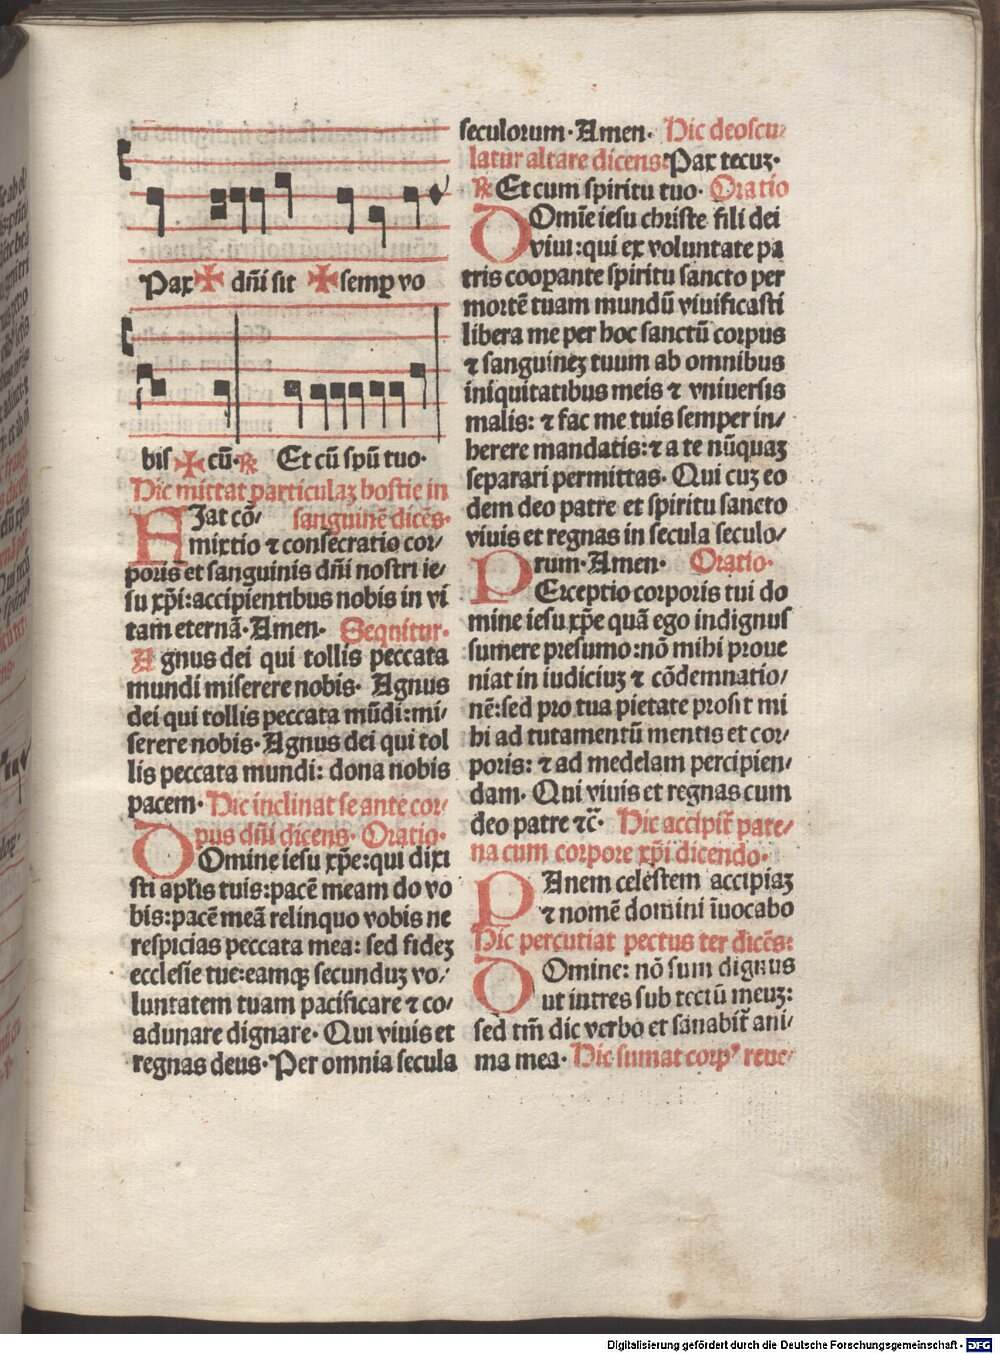 Pax ✠ dn̄i sit ✠ semꝑ vo
bis ✠ cū· ℟ Et cū spū tuo·
Hic mittat particulaꝫ hostie in
FIat cō⸗ sanguinē dicēs·
mixtio ⁊ consecratio cor⸗
poris et sanguinis dn̄i nostri ie⸗
su xp̄i: accipientibus nobis in vi
tam eternā· Amen· Sequitur·
Agnus dei qui tollis peccata
mundi miserere nobis· Agnus
dei qui tollis peccata mūdi: mi⸗
serere nobis· Agnus dei qui tol
lis peccata mundi: dona nobis
pacem· Hic inclinat se ante cor⸗
pus dn̄i dicens· Oratio·
DOmine iesu xp̄e: qui dixi
sti apl̄is tuis: pacē meam do vo
bis: pacē meā relinquo vobis ne
respicias peccata mea: sed fideꝫ
ecclesie tue: eamqꝫ secunduꝫ vo⸗
luntatem tuam pacificare ⁊ co⸗
adunare dignare· Qui viuis et
regnas deus· Per omnia secula
seculorum· Amen· Hic deoscu⸗
latur altare dicens: Pax tecuꝫ·
℟ Et cum spiritu tuo· Oratio
DOmīe iesu christe fili dei
viui: qui ex voluntate pa
tris cooꝑante spiritu sancto per
mortē tuam mundū viuificasti
libera me per hoc sanctū corpus
⁊ sanguineꝫ tuum ab omnibus
iniquitatibus meis ⁊ vniuersis
malis: ⁊ fac me tuis semper in⸗
herere mandatis: ⁊ a te nūquaꝫ
separari permittas· Qui cuꝫ eo
dem deo patre et spiritu sancto
viuis et regnas in secula seculo⸗
rum· Amen· Oratio·
PErceptio corporis tui do
mine iesu xp̄e quā ego indignus
sumere presumo: nō mihi proue
niat in iudiciuꝫ ⁊ cōdemnatio⸗
nē: sed pro tua pietate prosit mi
hi ad tutamentū mentis et cor⸗
poris: ⁊ ad medelam percipien⸗
dam· Qui viuis et regnas cum
deo patre ⁊c̄· Hic accipit̄ pate⸗
na cum corpore xp̄i dicendo·
PAnem celestem accipiaꝫ
⁊ nomē domini īuocabo
Hic percutiat pectus ter dicēs:
DOmine: nō sum dignus
ut intres sub tectū meuꝫ:
sed tm̄ dic verbo et sanabit̄ ani⸗
ma mea· Hic sumat corpꝰ reue⸗
Digitalisierung gefördert durch die Deutsche Forschungsgemeinschaft - DFG